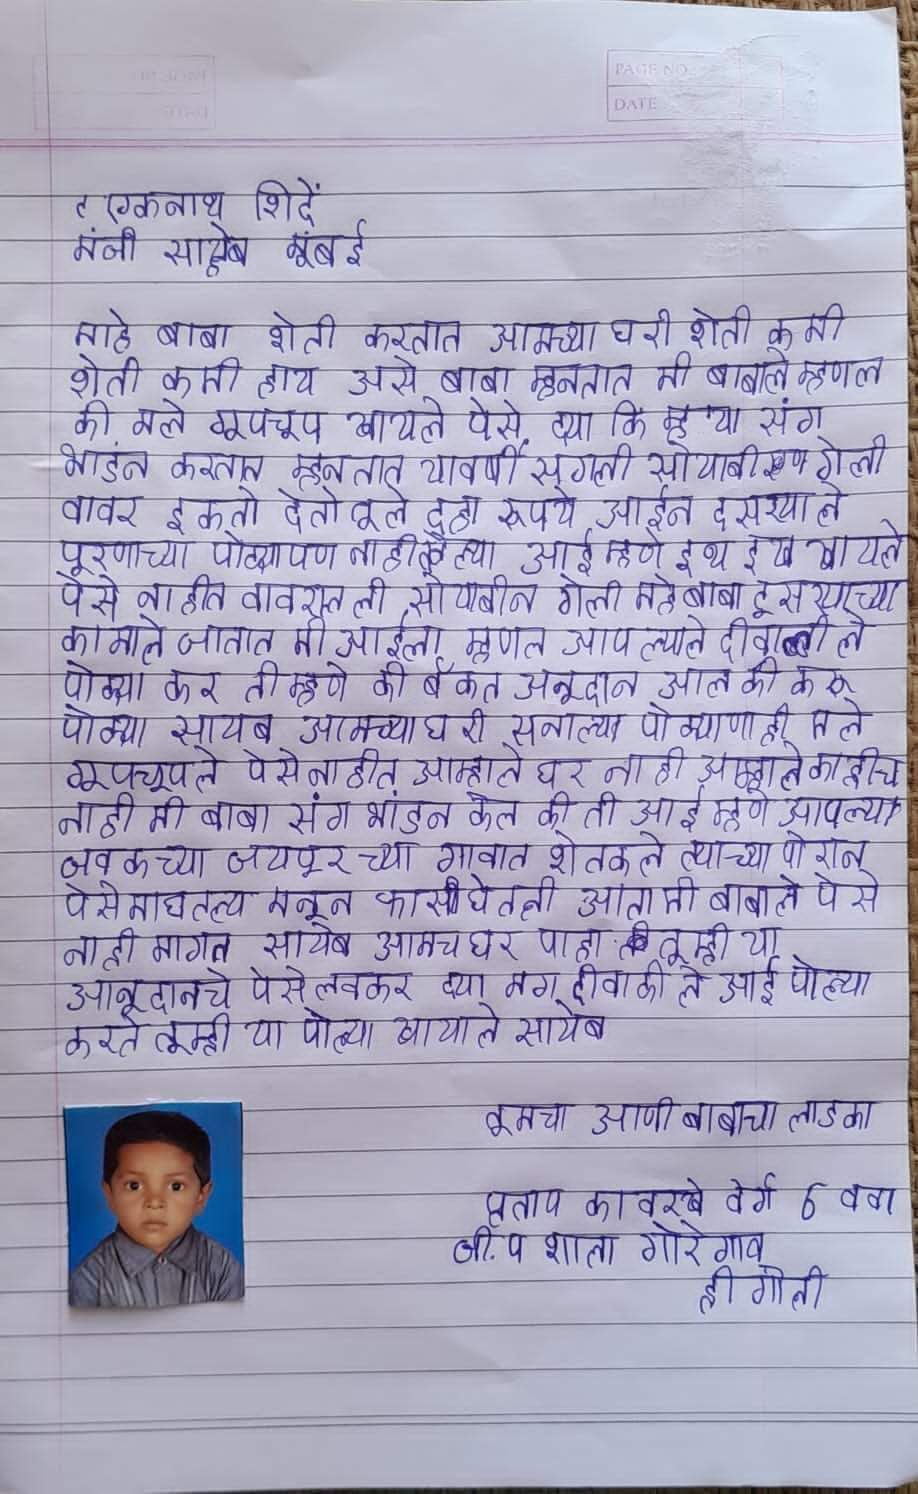 PAGE NO.
DATE
ट एकनाथ शिदें
मंत्री साहेब मूंबई
माहे बाबा शेती करतात आमच्या घरी शेती कमी
शेती कमी हाय असे बाबा म्हनतात मी बाबाले म्हणल
की मले गूपचूप खायले पेसे द्या कि म्ह्या संग
भांडन करतात म्हनतात यावर्षी सगली सोयाबीण गेली
वावर इकतो देतो तूले दहा रूपये आईन दसऱ्याले
पूरणाच्या पोळ्यापण नाही केल्या आई म्हणे इथ इख खायले
पेसे नाहीत वावरातली सोयाबीन गेली महे बाबा दूसऱ्याच्या
कामाले जातात मी आईला म्हणल आपल्याले दीवाळीले
पोळ्या कर ती म्हणे की बॅकत अनूदान आल की करू
पोळ्या सायब आमच्या घरी सनाल्या पोळ्याणाही मले
गूपचूपले पेसे नाहीत आम्हाले घर नाही आम्हाले काहीच
नाही मी बाबा संग भांडन केल की ती आई म्हणे आपल्या
जवळच्या जयपूरच्या गावात शेतकले त्याच्या पोरान
पेसे माघतल्य मनून फासी घेतली आता मी बाबाले पेसे
नाही मागत सायेब आमच घर पाहा तूम्ही या
आनूदानचे पेसे लवकर द्या मग दीवाळीले आई पोळ्या
करते तूम्ही या पोळ्या खायाले सायेब
तूमचा आणी बाबाचा लाडका
प्रताप कावरखे वर्ग 6 ववा
जी.प शाला गोरेगाव
हीगोली